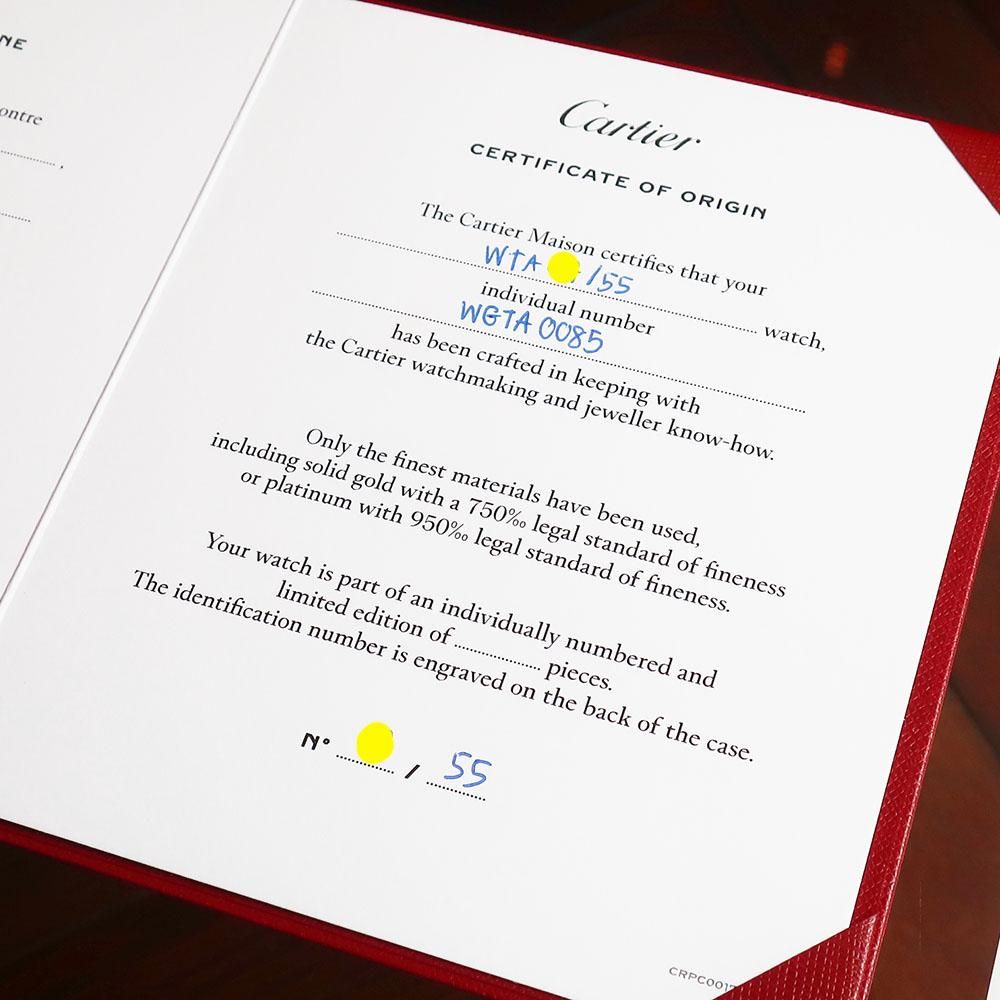 NE
ontre
,
Cartier
CERTIFICATE OF ORIGIN
The Cartier Maison certifies that your
WTA /55
watch,
individual number
WGTA 0085
has been crafted in keeping with
the Cartier watchmaking and jeweller know-how.
Only the finest materials have been used,
including solid gold with a 750‰ legal standard of fineness
or platinum with 950‰ legal standard of fineness.
Your watch is part of an individually numbered and
limited edition of ................... pieces.
The identification number is engraved on the back of the case.
N° ............ / 55